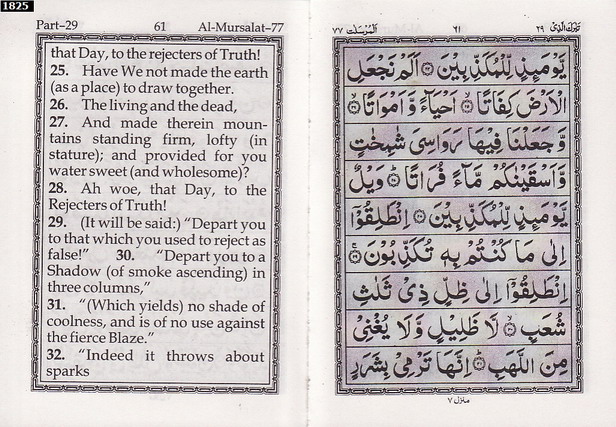 1825
Part–29 61 Al-Mursalat–77
that Day, to the rejecters of Truth!
25. Have We not made the earth
(as a place) to draw together.
26. The living and the dead,
27. And made therein moun-
tains standing firm, lofty (in
stature); and provided for you
water sweet (and wholesome)?
28. Ah woe, that Day, to the
Rejecters of Truth!
29. (It will be said:) “Depart you
to that which you used to reject as
false!” 30. “Depart you to a
Shadow (of smoke ascending) in
three columns,
31. “(Which yields) no shade of
coolness, and is of no use against
the fierce Blaze.”
32. “Indeed it throws about
sparks
تبٰرك الذی ٢٩ ٦١ المرسلت ٧٧
يَّوْمَىِٕذٍ لِّلْمُكَذِّبِيْنَ ۝٢٤ اَلَمْ نَجْعَلِ
الْاَرْضَ كِفَاتًا ۝٢٥ اَحْيَآءً وَّاَمْوَاتًا ۝٢٦
وَّجَعَلْنَا فِيْهَا رَوَاسِيَ شٰمِخٰتٍ
وَّاَسْقَيْنٰكُمْ مَّآءً فُرَاتًا ۝٢٧ وَيْلٌ
يَّوْمَىِٕذٍ لِّلْمُكَذِّبِيْنَ ۝٢٨ اِنْطَلِقُوْٓا
اِلٰى مَا كُنْتُمْ بِهٖ تُكَذِّبُوْنَ ۝٢٩
اِنْطَلِقُوْٓا اِلٰى ظِلٍّ ذِيْ ثَلٰثِ
شُعَبٍ ۝٣٠ لَّا ظَلِيْلٍ وَّلَا يُغْنِيْ
مِنَ اللَّهَبِ ۝٣١ اِنَّهَا تَرْمِيْ بِشَرَرٍ
منزل ٧